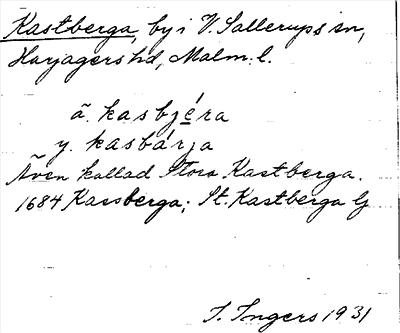 Kastberga, by i V. Sallerups sn,
Harjagers hd, Malm. l.
ä. kasbjéra
y. kasbárja
Även kallad Stora Kastberga.
1684 Kassberga; St. Kastberga G
I. Ingers 1931